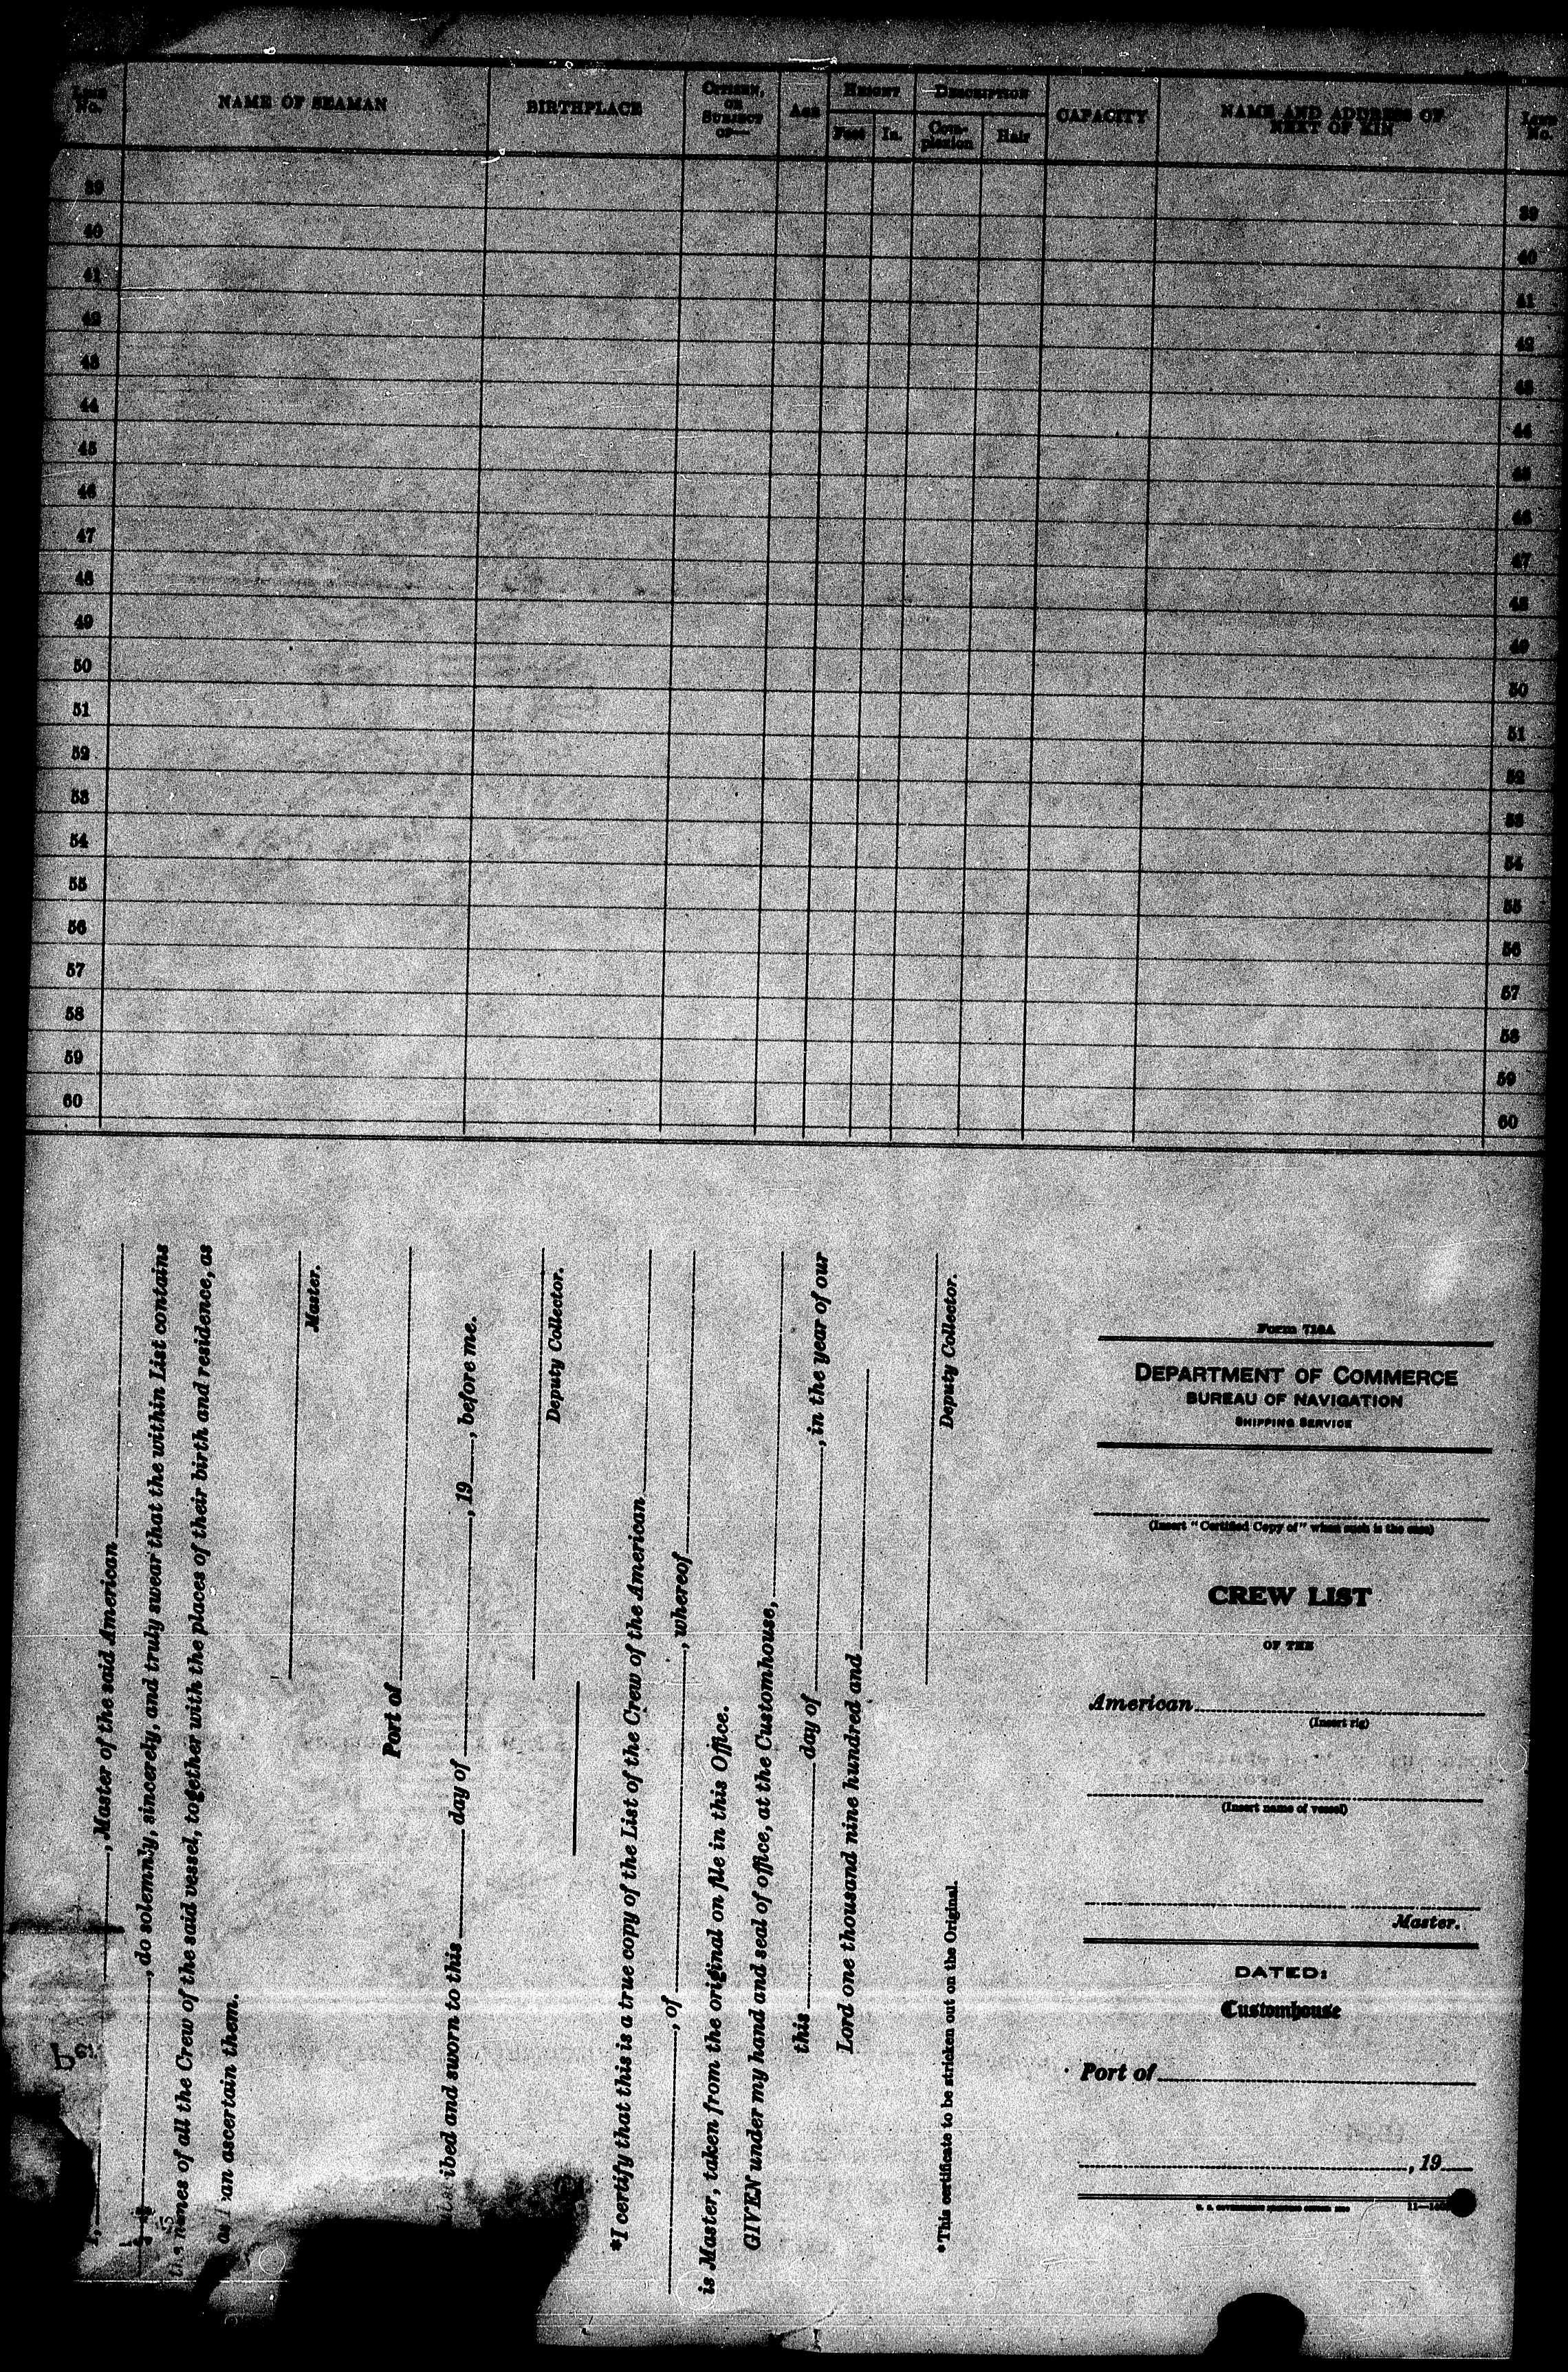 LINE No. NAME OF SEAMAN BIRTHPLACE CITIZEN, OR SUBJECT OF— AGE HEIGHT Feet In. DESCRIPTION Com-plexion Hair CAPACITY NAME AND ADDRESS OF NEXT OF KIN LINE No.
39 39
40 40
41 41
42 42
43 43
44 44
45 45
46 46
47 47
48 48
49 49
50 50
51 51
52 52
53 53
54 54
55 55
56 56
57 57
58 58
59 59
60 60
I, , Master of the said American
, do solemnly, sincerely, and truly swear that the within List contains
the names of all the Crew of the said vessel, together with the places of their birth and residence, as
as I can ascertain them.
Master.
Port of
ibed and sworn to this day of , 19 , before me.
Deputy Collector.
*I certify that this is a true copy of the List of the Crew of the American
, of , whereof
is Master, taken from the original on file in this Office.
GIVEN under my hand and seal of office, at the Customhouse,
this day of , in the year of our
Lord one thousand nine hundred and
Deputy Collector.
*This certificate to be stricken out on the Original.
Form 718A
DEPARTMENT OF COMMERCE
BUREAU OF NAVIGATION
SHIPPING SERVICE
(Insert "Certified Copy of" when such is the case)
CREW LIST
OF THE
American
(Insert rig)
(Insert name of vessel)
Master.
DATED:
Customhouse
Port of
, 19